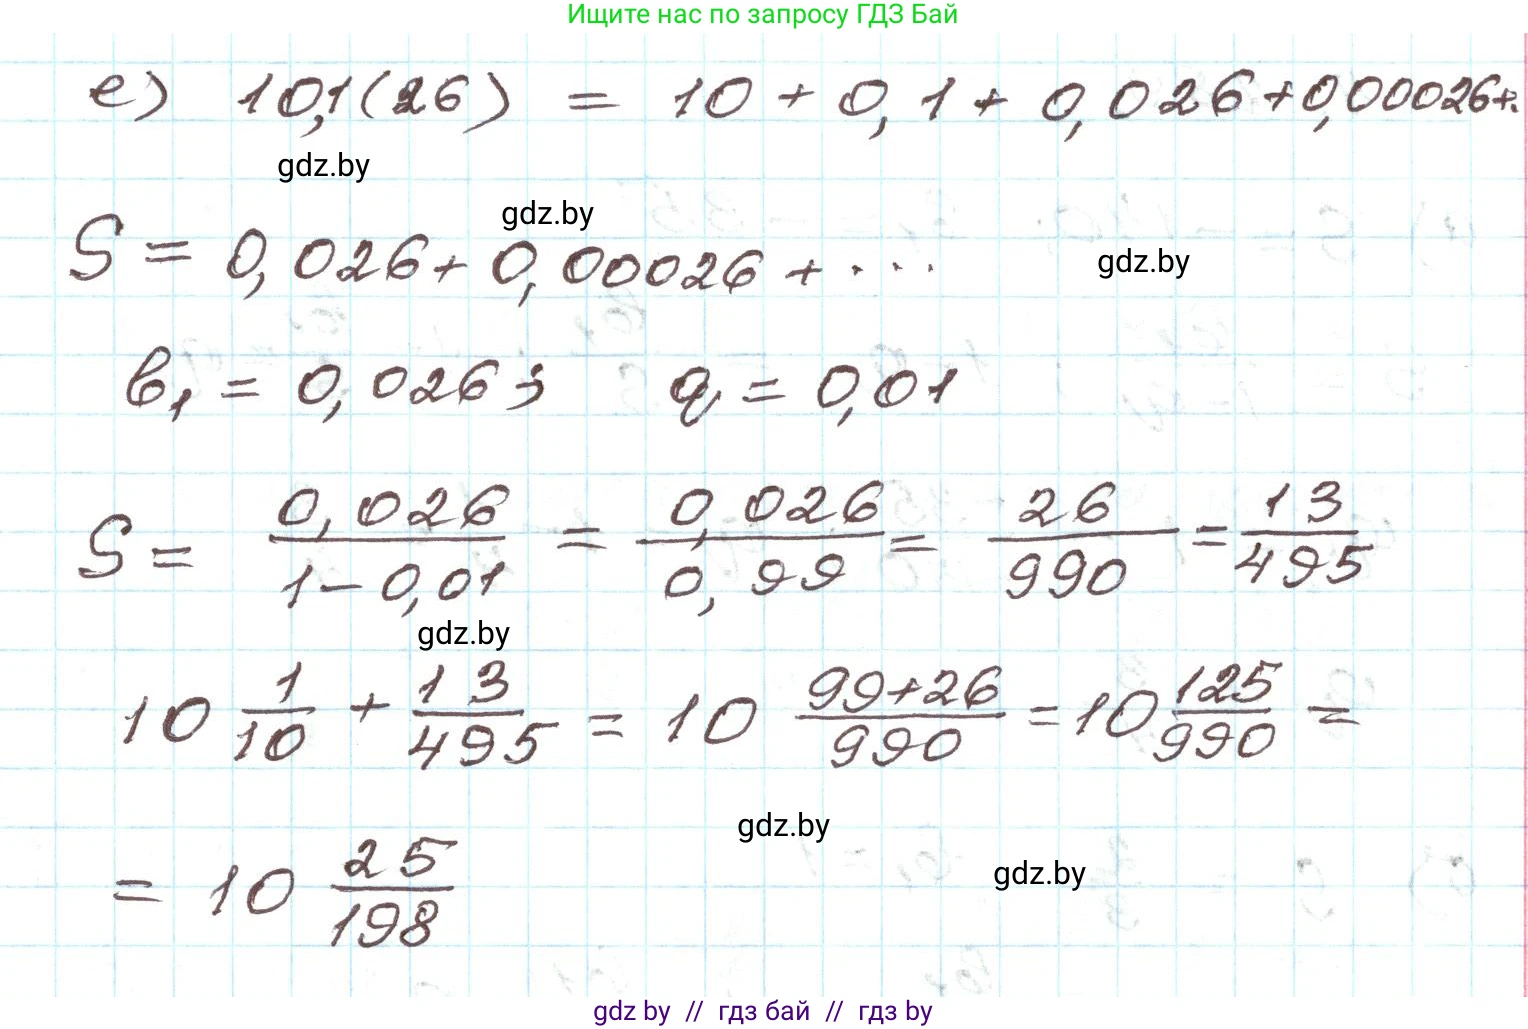 Ищите нас по запросу ГДЗ Бай
е) 10,1(26) = 10 + 0,1 + 0,026 + 0,00026+..
gdz.by
gdz.by
S = 0,026 + 0,00026 + ...
gdz.by
b₁ = 0,026; q = 0,01
S = 0,026/(1-0,01) = 0,026/0,99 = 26/990 = 13/495
gdz.by
10 1/10 + 13/495 = 10 (99+26)/990 = 10 125/990 =
gdz.by
= 10 25/198
gdz.by
gdz by // гдз бай // гдз by